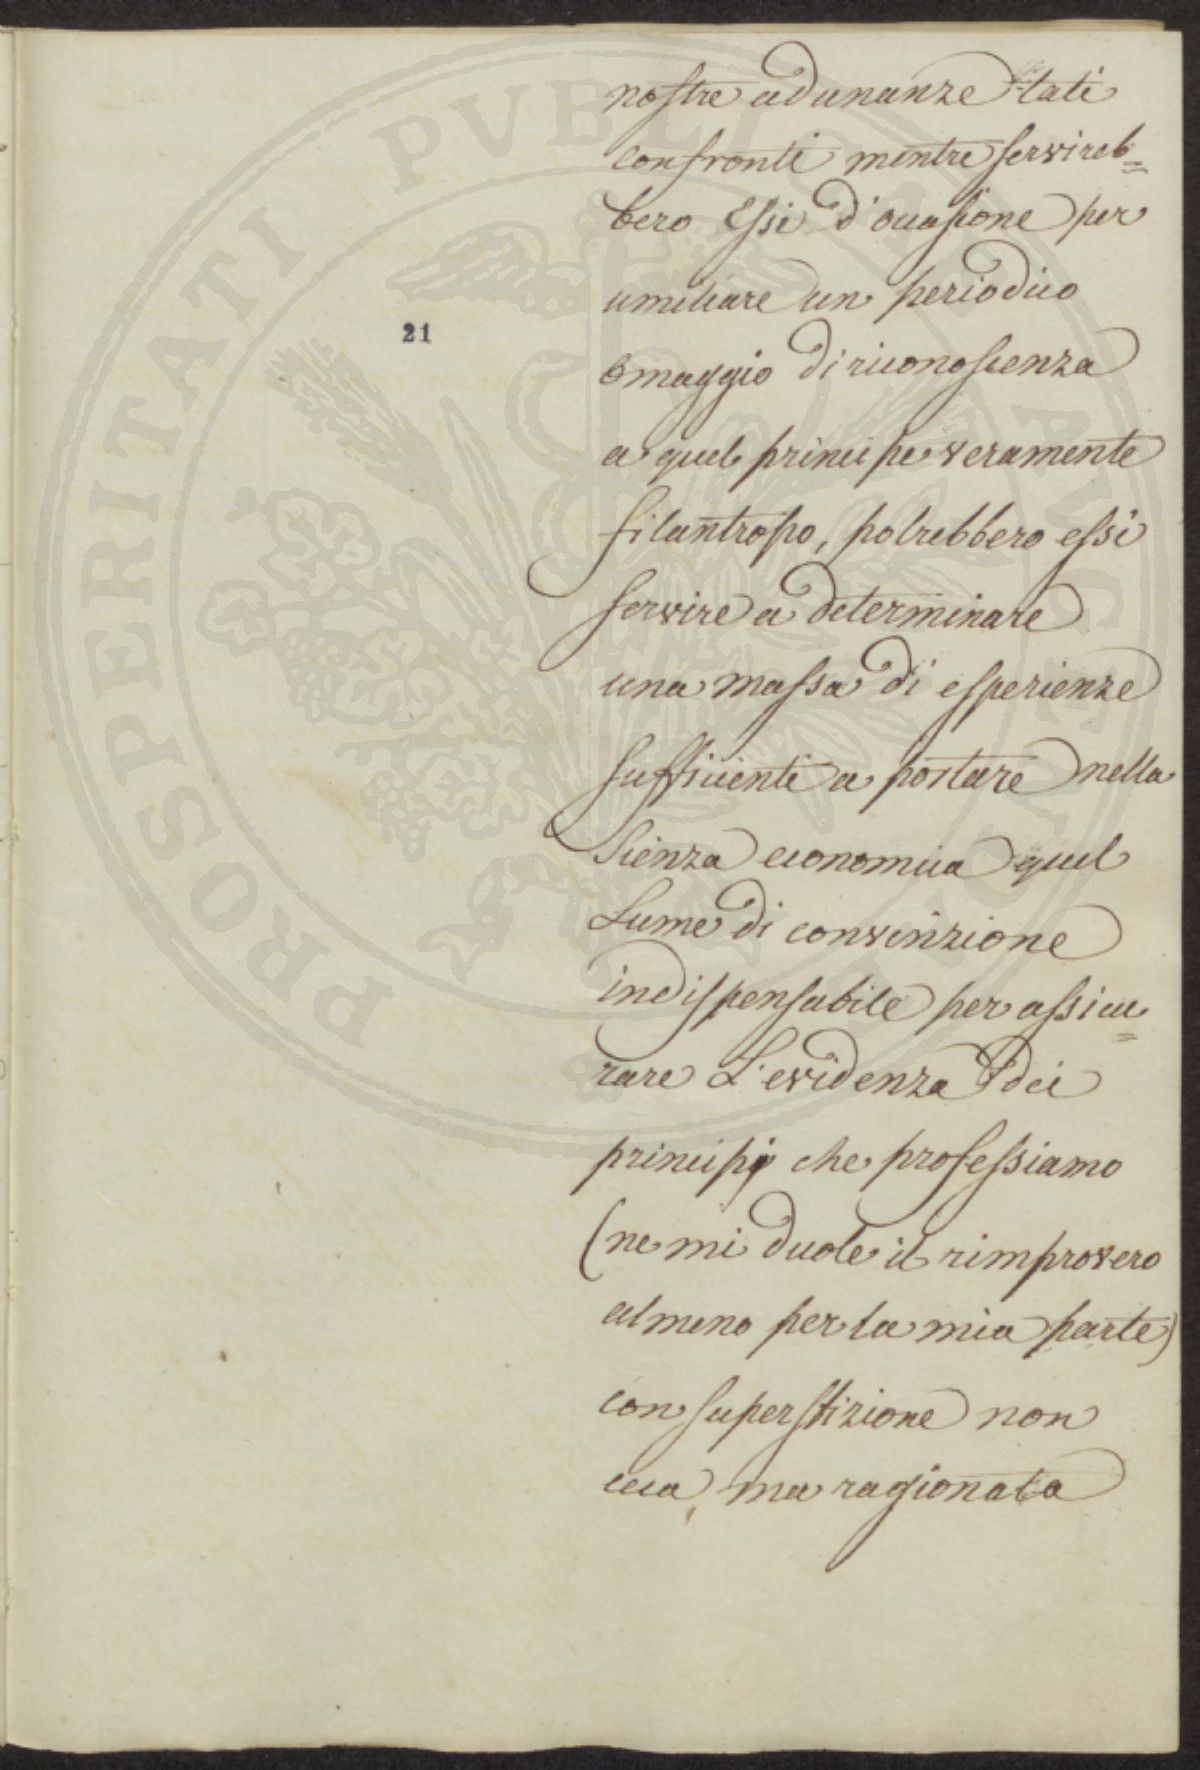 PROSPERITATI PVBLICAE AVGENDAE
21
nostre adunanze tali
confronti mentre servireb=
bero Essi d'occasione per
umiliare un periodico
omaggio di riconoscenza
a quel principe veramente
filantropo, potrebbero essi
servire a determinare
una massa di esperienze
sufficienti a portare nella
Scienza economica quel
Lume di convinzione
indispensabile per assicu=
rare L'evidenza dei
principj che professiamo
(ne mi duole il rimprovero
almeno per la mia parte)
con superstizione non
ceca, ma ragionata